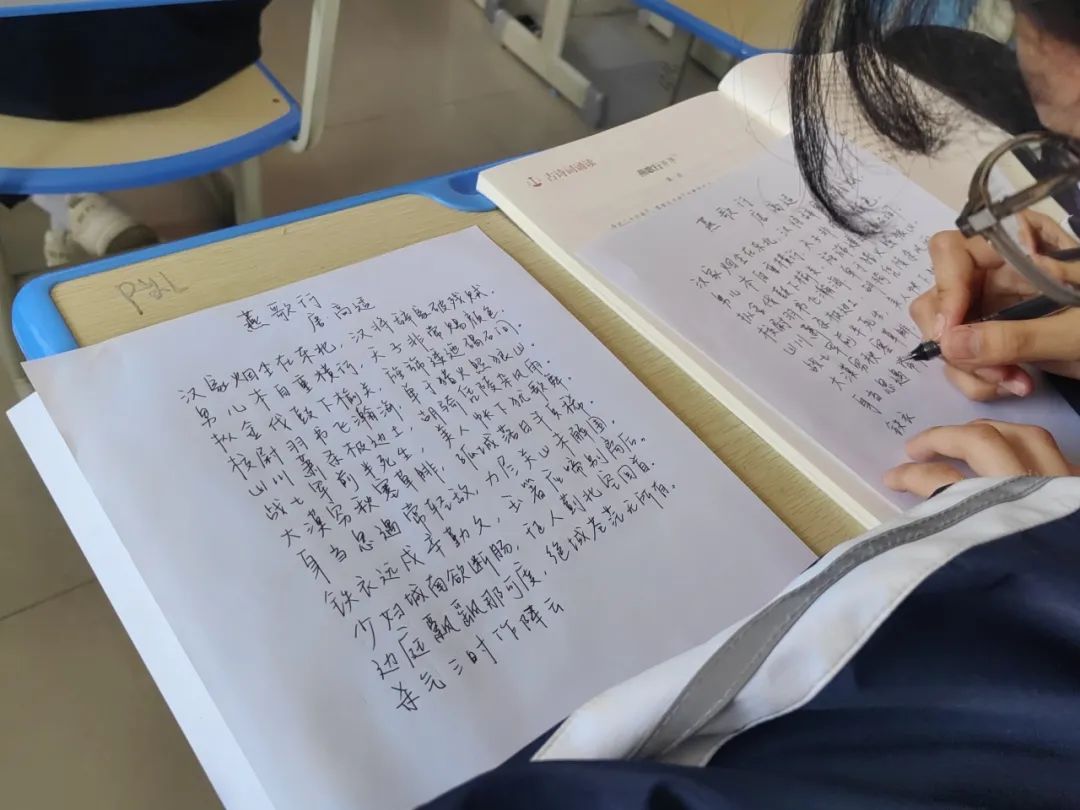 PYL
燕歌行
唐 高适
汉家烟尘在东北，汉将辞家破残贼。
男儿本自重横行，天子非常赐颜色。
枞金伐鼓下榆关，旌旆逶迤碣石间。
校尉羽书飞瀚海，单于猎火照狼山。
山川萧条极边土，胡骑凭陵杂风雨。
战士军前半死生，美人帐下犹歌舞。
大漠穷秋塞草腓，孤城落日斗兵稀。
身当恩遇常轻敌，力尽关山未解围。
铁衣远戍辛勤久，玉箸应啼别离后。
少妇城南欲断肠，征人蓟北空回首。
边庭飘飖那可度，绝域苍茫无所有。
杀气三时作阵云
古诗词诵读
燕歌行并序
燕歌行
唐 高适
汉家烟尘在东北，汉将辞
男儿本自重横行，天子非
枞金伐鼓下榆关，旌旆逶
校尉羽书飞瀚海，单于猎火照狼山
山川萧条极边土，胡骑凭陵杂
战士军前半死生，美人帐
大漠穷秋塞草腓
身当恩遇常
铁衣